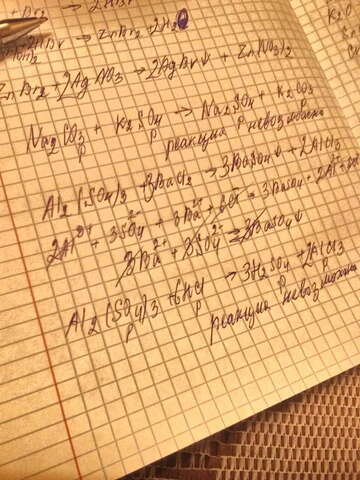 → ZnBr2 + 2H2O
ZnBr2 + 2AgNO3 → 2AgBr↓ + Zn(NO3)2
Na2CO3 + K2SO4 → Na2SO4 + K2CO3
р р реакция невозможна
Al2(SO4)3 + 3BaCl2 → 3BaSO4↓ + 2AlCl3
2Al3+ + 3SO4 2- + 3Ba2+ + 6Cl- = 3BaSO4 + 2Al3+
3Ba2+ + 3SO4 2- = 3BaSO4↓
Al2(SO4)3 + 6HCl → 3H2SO4 + 2AlCl3
р р р реакция невозможна